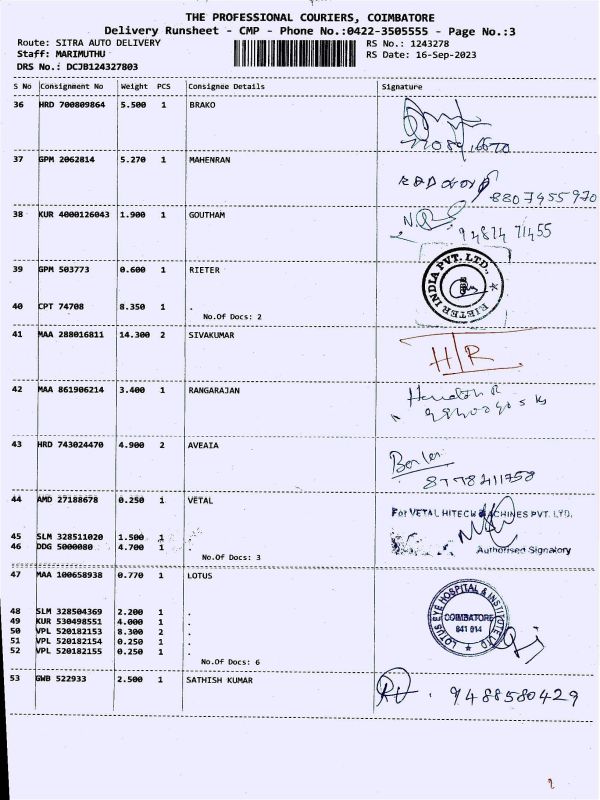 THE PROFESSIONAL COURIERS, COIMBATORE
Delivery Runsheet - CMP - Phone No.:0422-3505555 - Page No.:3
Route: SITRA AUTO DELIVERY RS No.: 1243278
Staff: MARIMUTHU RS Date: 16-Sep-2023
DRS No.: DCJB124327803
S No Consignment No Weight PCS Consignee Details Signature
36 HRD 700809864 5.500 1 BRAKO
37 GPM 2062814 5.270 1 MAHENRAN
8807455970
38 KUR 4000126043 1.900 1 GOUTHAM
94874 71455
39 GPM 503773 0.600 1 RIETER
RIETER INDIA PVT. LTD.
40 CPT 74708 8.350 1 .
No.Of Docs: 2
41 MAA 288016811 14.300 2 SIVAKUMAR
H/R
42 MAA 861906214 3.400 1 RANGARAJAN
43 HRD 743024470 4.900 2 AVEAIA
8778411758
44 AMD 27188678 0.250 1 VETAL
For VETAL HITECH MACHINES PVT. LTD.
45 SLM 328511020 1.500 1 .
46 DDG 5000080 4.700 1 .
Authorised Signatory
No.Of Docs: 3
47 MAA 100658938 0.770 1 LOTUS
LOTUS EYE HOSPITAL & INSTITUTE LTD
COIMBATORE
641 014
48 SLM 328504369 2.200 1 .
49 KUR 530498551 4.000 1 .
50 VPL 520182153 8.300 2 .
51 VPL 520182154 0.250 1 .
52 VPL 520182155 0.250 1 .
No.Of Docs: 6
53 GWB 522933 2.500 1 SATHISH KUMAR
9488580429